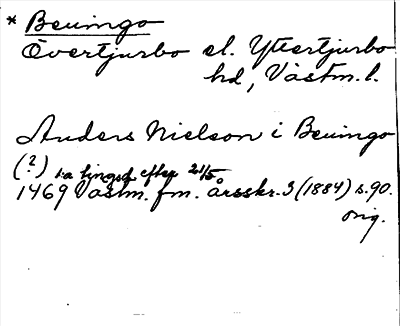 * Beuingo
Övertjurbo el. Yttertjurbo
hd, Västm. l.
Anders Nielson i Beuingo
(?) 1:a tingsd efter 21/5
1469 Västm. fm. årsskr. 3 (1884) s. 90.
orig.